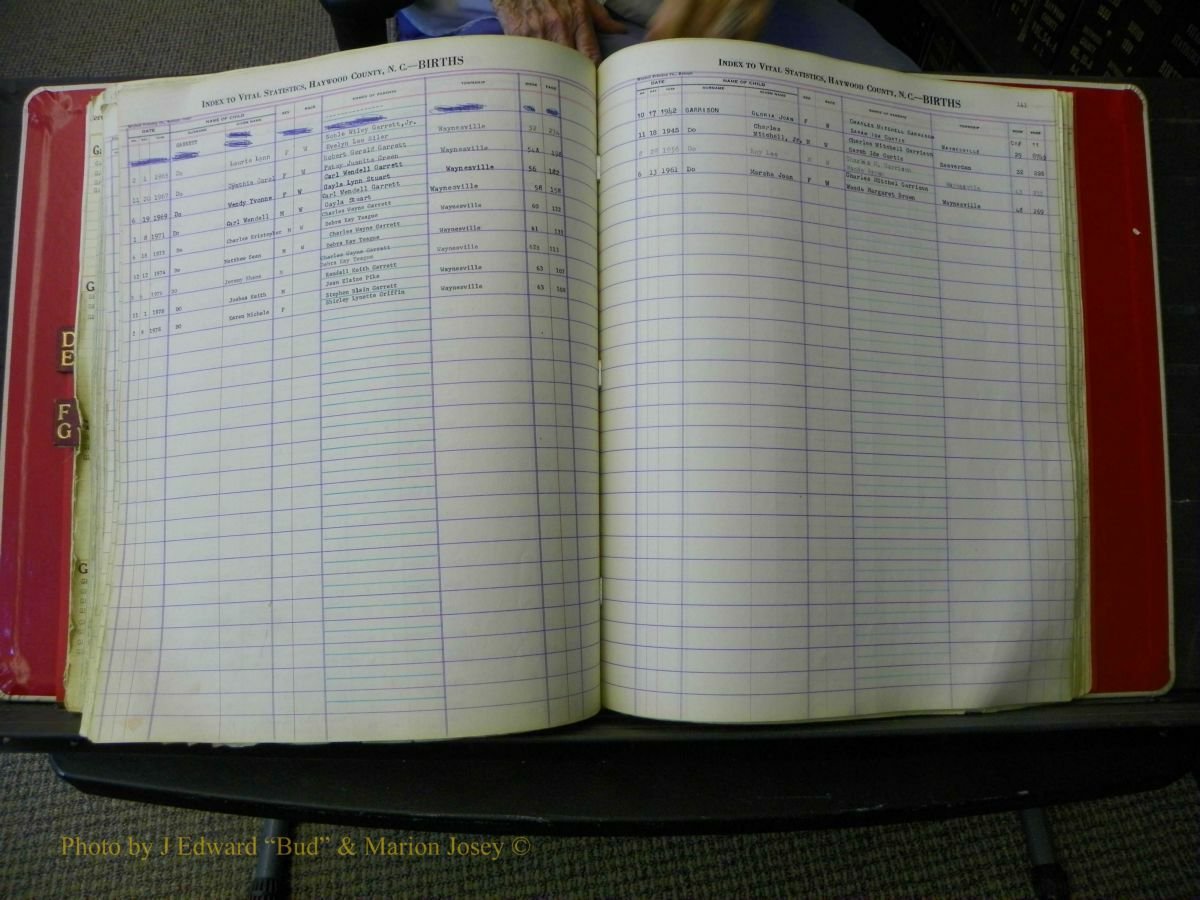 INDEX TO VITAL STATISTICS, HAYWOOD COUNTY, N. C.—BIRTHS
DATE NAME OF CHILD SEX RACE NAMES OF PARENTS TOWNSHIP BOOK PAGE
SURNAME GIVEN NAME
GARRETT
2 1 1965 Do Laurie Lynn F W Noble Wiley Garrett, Jr. Waynesville 52
Evelyn Lee Siler
11 20 1967 Do Cynthia Carol F W Robert Gerald Garrett Waynesville 54A 198
Patsy Juanita Green
6 19 1969 Do Wendy Yvonne F W Carl Wendell Garrett Waynesville 56 182
Gayla Lynn Stuart
1 8 1971 Do Carl Wendell M W Carl Wendell Garrett Waynesville 58 158
Gayla Stuart
6 18 1973 Do Charles Kristopher M W Charles Wayne Garrett Waynesville 60 132
Debra Kay Teague
12 12 1974 Do Matthew Sean M W Charles Wayne Garrett Waynesville 61
Debra Kay Teague
Do Jeremy Shane Charles Wayne Garrett Waynesville 113
Debra Kay Teague
11 1 1978 Do Joshua Keith M Kendall Keith Garrett Waynesville 63 107
Jean Elaine Pike
1978 Do Karen Michele F Stephen Blain Garrett Waynesville 63 108
Shirley Lynette Griffin
INDEX TO VITAL STATISTICS, HAYWOOD COUNTY, N. C.—BIRTHS
DATE NAME OF CHILD SEX RACE NAMES OF PARENTS TOWNSHIP BOOK PAGE
SURNAME GIVEN NAME
10 17 1942 GARRISON GLORIA JOAN F W CHARLES MITCHELL GARRISON WAYNESVILLE
SARAH IDA CURTIS
11 18 1945 Do Charles Mitchell, Jr. M W Charles Mitchell Garrison Beaverdam
Sarah Ida Curtis
8 28 1956 Do Roy Lee M W Charles M. Garrison Waynesville
6 13 1961 Do Marsha Jean F W Charles Mitchel Garrison Waynesville 48 269
Wanda Margaret Brown
D
E
F
G
Photo by J Edward “Bud” & Marion Josey ©